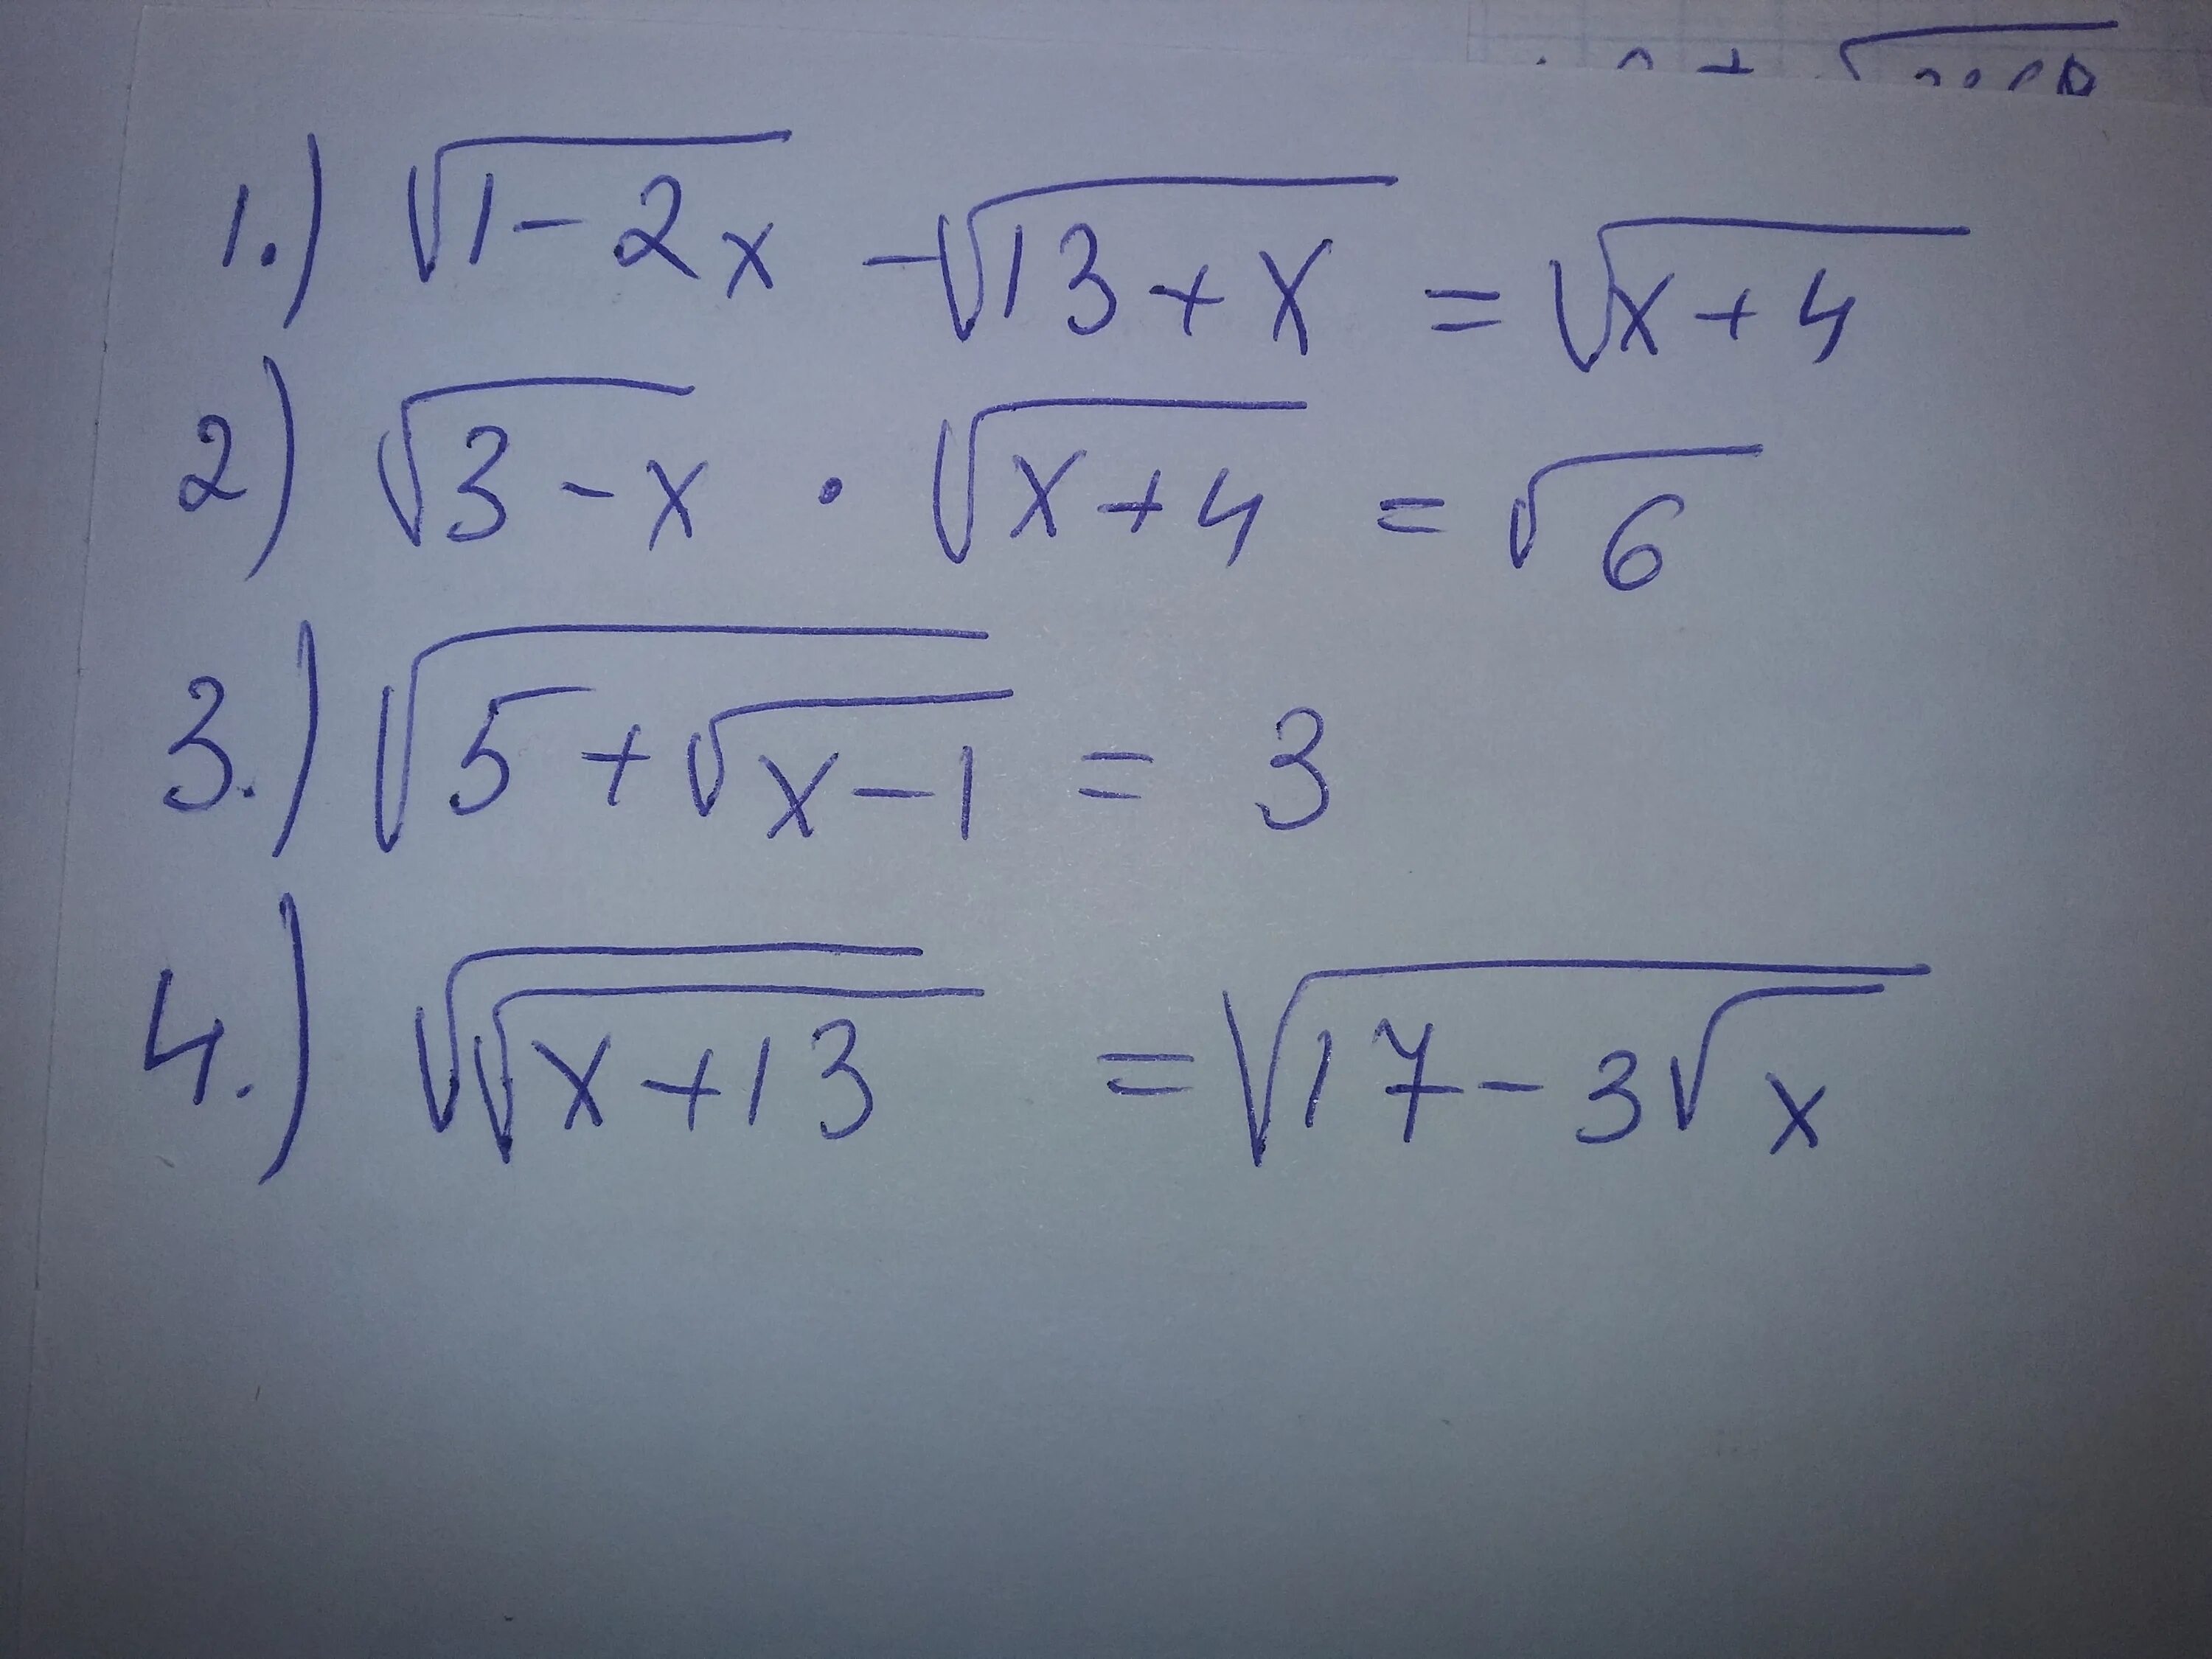 1.) √(1-2x) - √(13+x) = √(x+4)
2) √(3-x) · √(x+4) = √6
3.) √(5+√(x-1)) = 3
4.) √(√(x+13)) = √(17-3√x)